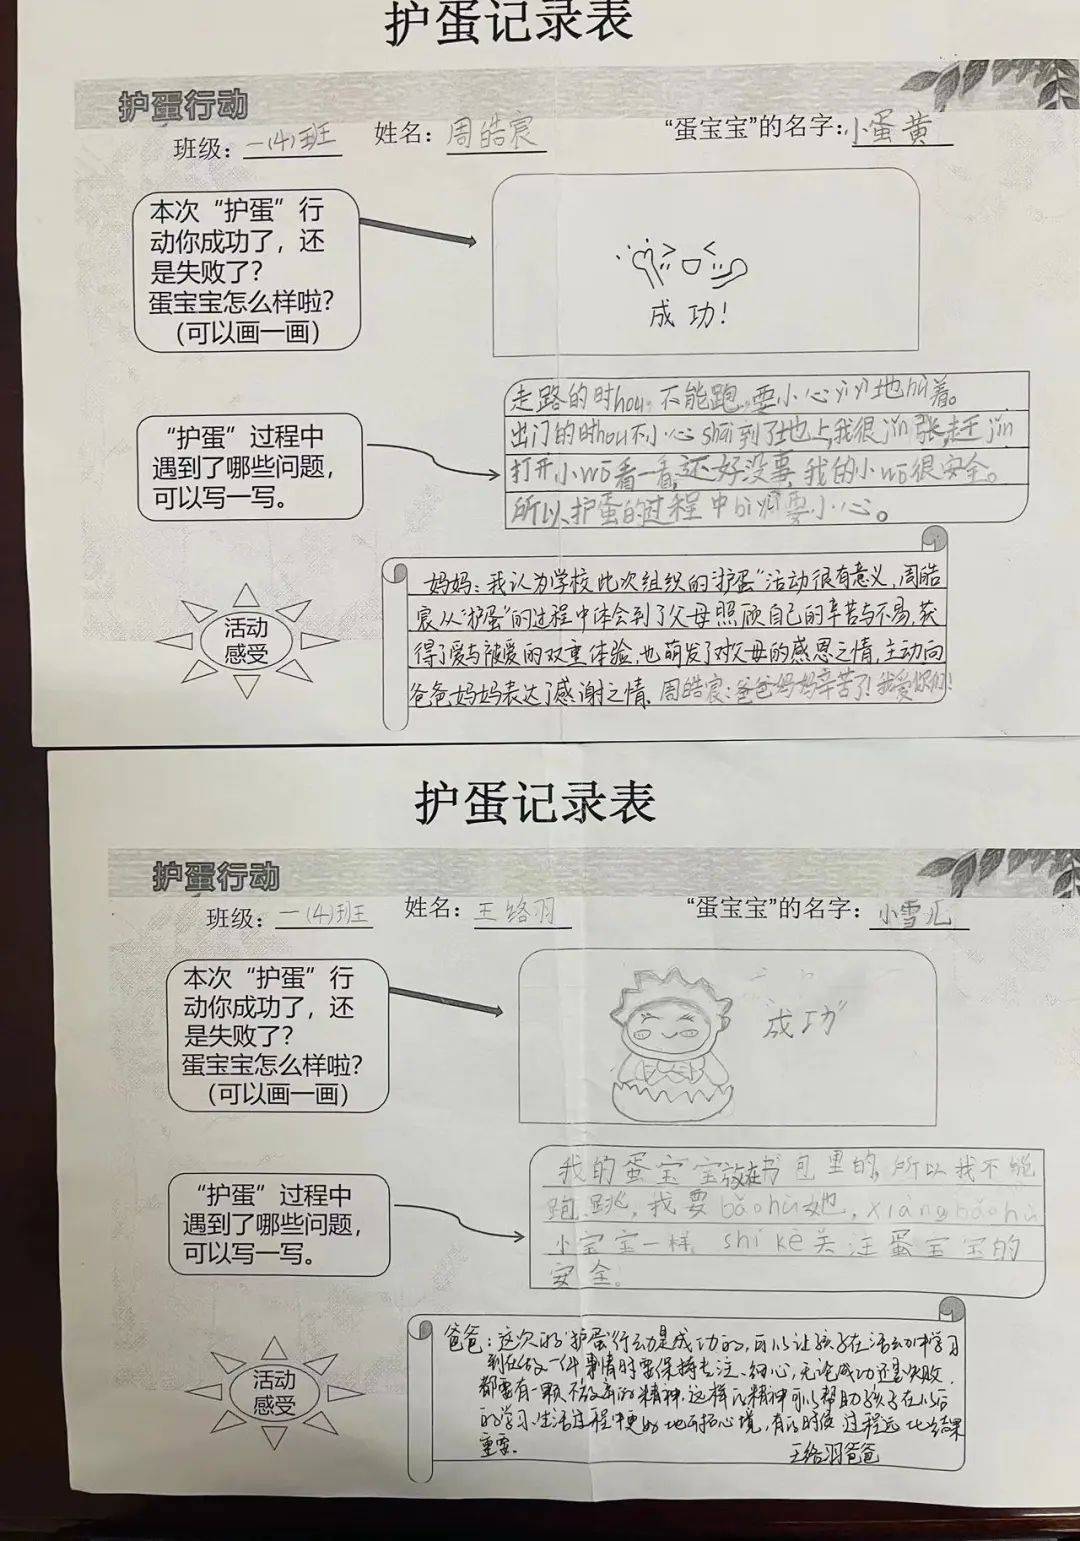 护蛋记录表
护蛋行动
班级：一(4)班 姓名：周皓宸 “蛋宝宝”的名字：小蛋黄
本次“护蛋”行
动你成功了，还
是失败了？
蛋宝宝怎么样啦？
（可以画一画）
成功！
“护蛋”过程中
遇到了哪些问题，
可以写一写。
走路的时hou，不能跑，要小心yìyì地hù着。
出门的时hou不小心shāi到了地上，我很jǐn张，赶jǐn
打开小wō看一看，还好没事，我的小wō很安全。
所以，护蛋的过程中bì须要小心。
活动
感受
妈妈：我认为学校此次组织的“护蛋”活动很有意义，周皓
宸从“护蛋”的过程中体会到了父母照顾自己的辛苦与不易，获
得了爱与被爱的双重体验，也萌发了对父母的感恩之情，主动向
爸爸妈妈表达了感谢之情。周皓宸：爸爸妈妈辛苦了！我爱你们！
护蛋记录表
护蛋行动
班级：一(4)班 姓名：王络羽 “蛋宝宝”的名字：小雪儿
本次“护蛋”行
动你成功了，还
是失败了？
蛋宝宝怎么样啦？
（可以画一画）
成功
“护蛋”过程中
遇到了哪些问题，
可以写一写。
我的蛋宝宝放在书包里的，所以我不能
跑跳，我要bǎohù她，xiàng bǎohù
小宝宝一样，shí kè关注蛋宝宝的
安全。
活动
感受
爸爸：这次的“护蛋”行动是成功的，可以让孩子在活动中学习
到在做一件事情时要保持专注、细心，无论成功还是失败，
都要有一颗不放弃的精神，这样的精神可以帮助孩子在以后
的学习、生活过程中更好地开拓心境，有的时候过程远比结果
重要。
王络羽爸爸